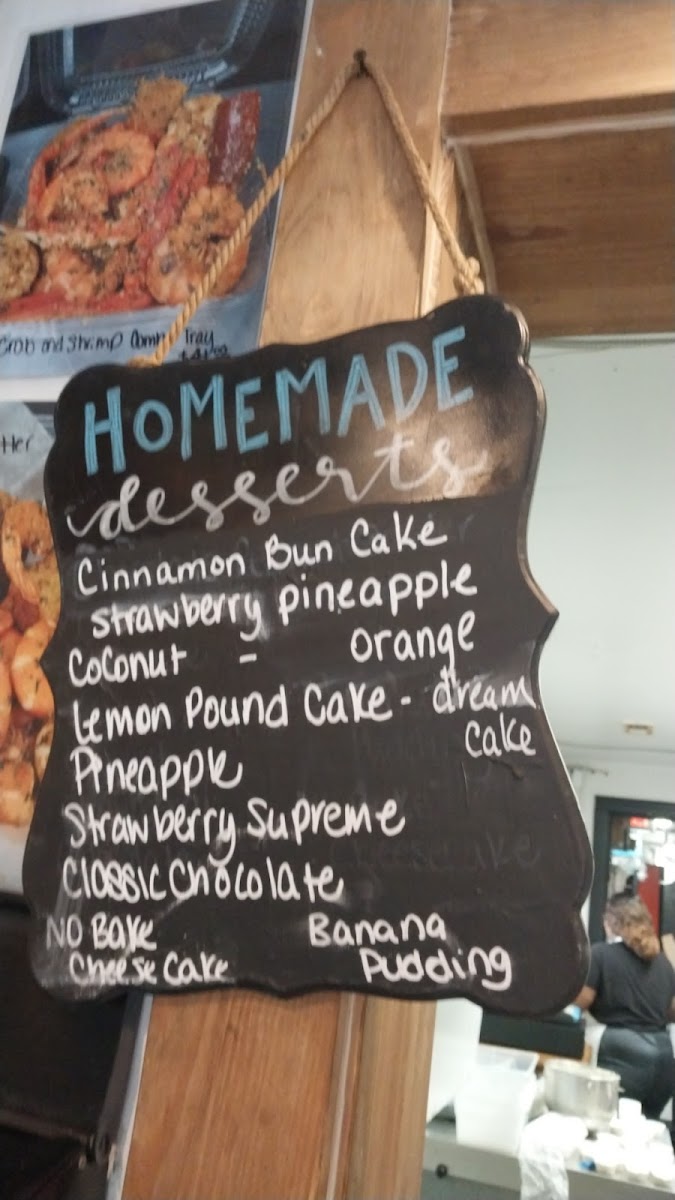 Crab and Shrimp Combo Tray
HOMEMADE
desserts
Cinnamon Bun Cake
strawberry pineapple
Coconut - orange
Lemon Pound Cake - dream
Cake
Pineapple
Strawberry Supreme
Classic Chocolate
NO Bake Banana
Cheese Cake Pudding